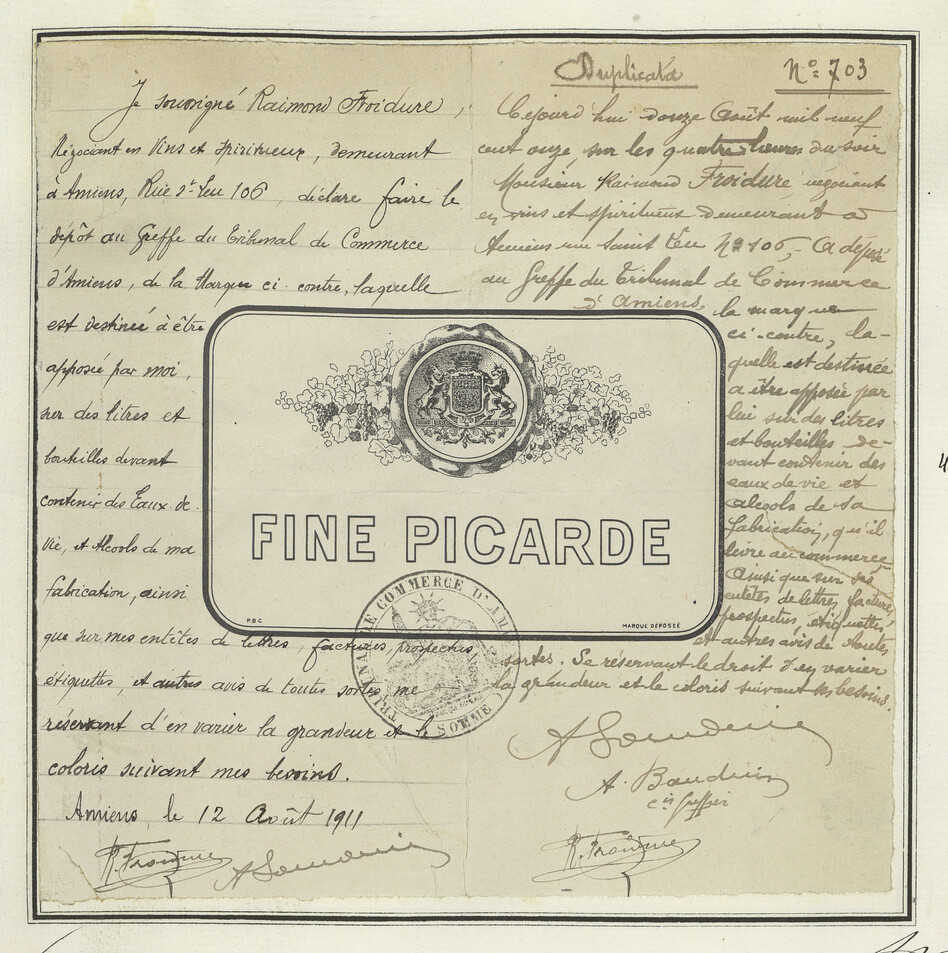 Je soussigné Raimond Froidure,
Négociant en Vins et Spiritueux, demeurant
à Amiens, Rue St Leu 106, déclare faire le
dépôt au Greffe du Tribunal de Commerce
d'Amiens, de la Marque ci-contre, laquelle
est destinée à être
apposée par moi,
sur des litres et
bouteilles devant
contenir des Eaux-de-
Vie, et Alcools de ma
fabrication, ainsi
que sur mes entêtes de lettres, factures, prospectus
étiquettes, et autres avis de toutes sortes me
réservant d'en varier la grandeur et le
coloris suivant mes besoins.
Amiens, le 12 Août 1911
R. Froidure
Duplicata
No= 703
Cejourd'hui douze Août mil neuf
cent onze, sur les quatre heures du soir
Monsieur Raimond Froidure négociant
en vins et spiritueux demeurant à
Amiens rue Saint Leu No 106, a déposé
au Greffe du Tribunal de Commerce
d'Amiens,
la marque
ci-contre, la-
quelle est destinée
a être apposée par
lui sur des litres
et bouteilles de-
vant contenir des
eaux de vie et
alcools de sa
fabrication, qu'il
livre au commerce
Ainsi que sur ses
entêtes de lettres, factures,
prospectus, étiquettes,
et autres avis de toutes
sortes. Se réservant le droit d'en varier
la grandeur et le coloris suivant ses besoins.
A. Bauduin
cis Greffier
R. Froidure
FINE PICARDE
P.B.C
MARQUE DÉPOSÉE
TRIBUNAL DE COMMERCE D'AMIENS